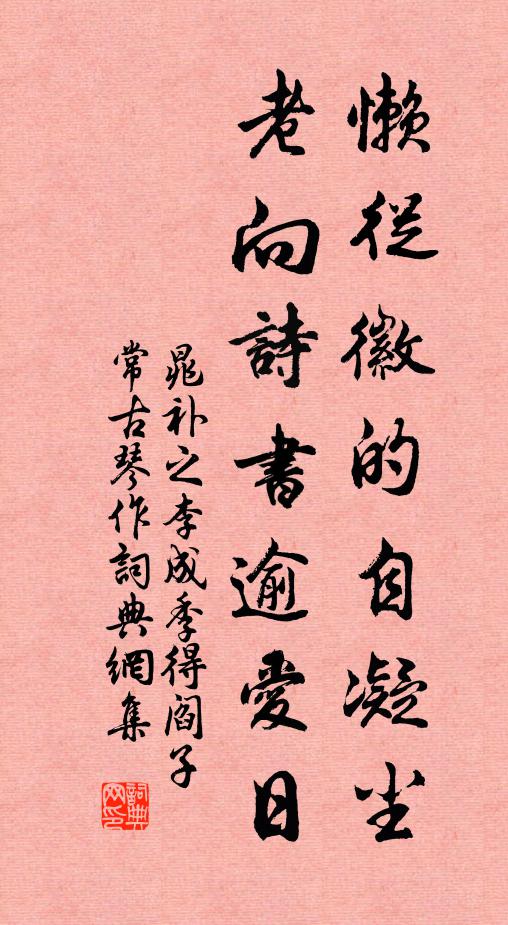 懒從徽的自凝尘
老向詩書逾愛日
晁补之李成季得阎子
常古琴作詞典網集
詞典网印